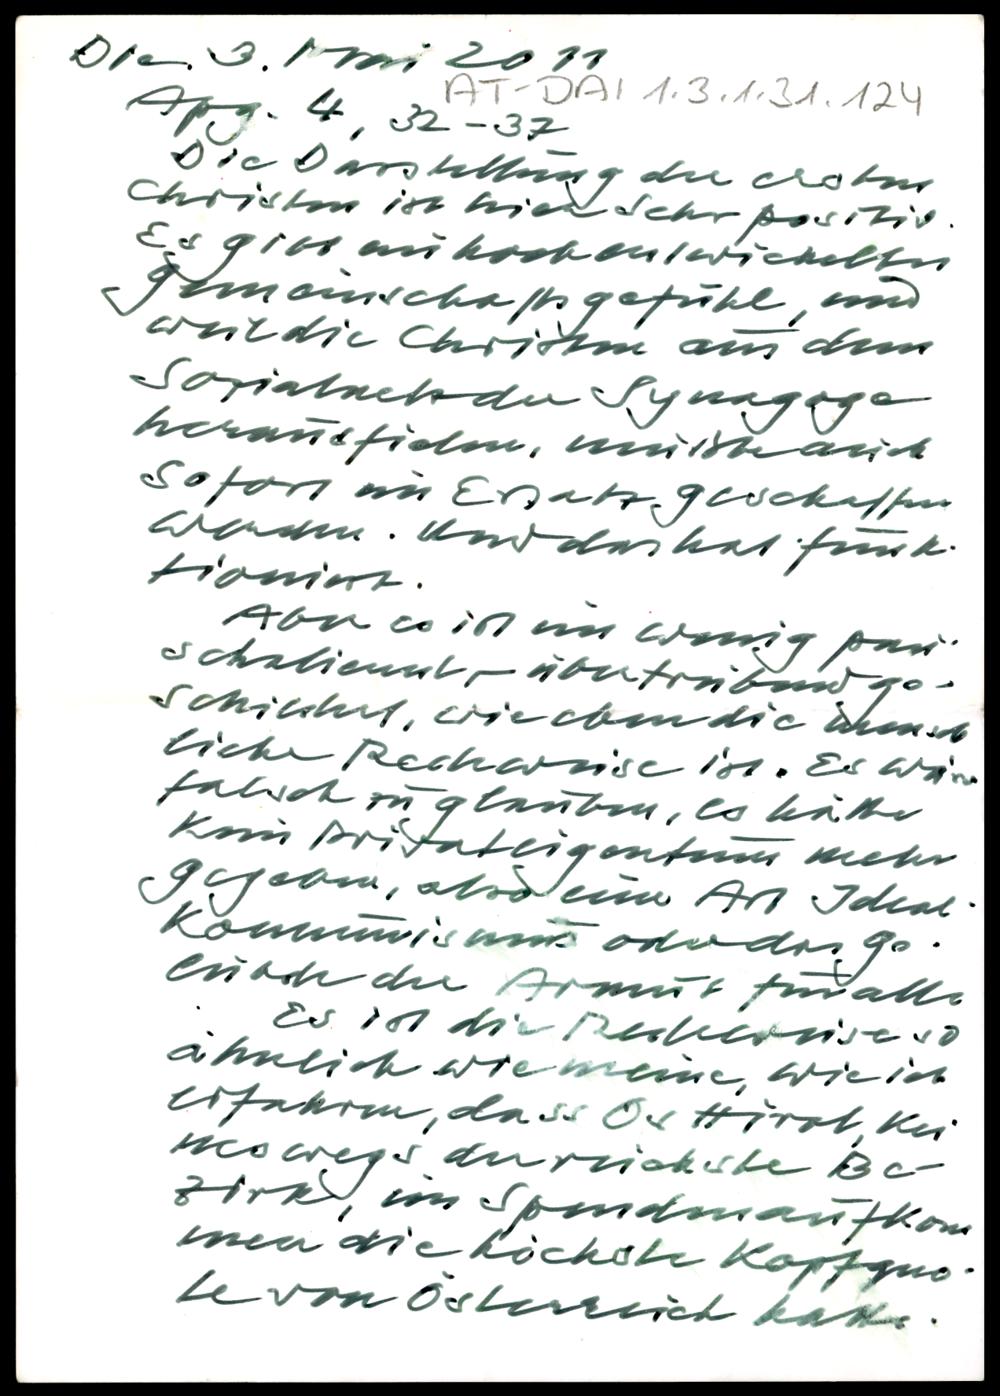 Die. 3. Mai 2011
AT-DAI 1.3.1.31.124
Apg. 4, 32-37
Die Darstellung der ersten
Christen ist hier sehr positiv.
Es gibt ein hochentwickeltes
Gemeinschaftsgefühl, und
weil die Christen aus dem
Sozialnetz der Synagoge
herausfielen, musste auch
sofort ein Ersatz geschaffen
werden. Und das hat funk-
tioniert.
Aber es ist ein wenig pau-
schalierend, übertreibend ge-
schildert, wie eben die
liche Redeweise ist. Es wäre
falsch zu glauben, es hätte
kein Privateigentum mehr
gegeben, also eine Art Ideal-
Kommunismus oder das Ge-
lübde der Armut für alle
Es ist die Redeweise so
ähnlich wie meine, wie ich
erfahren, dass Osttirol, kei
neswegs der reichste Be-
zirk, im Spendenaufkom
men die höchste Kopfquo-
te von Österreich hatte.